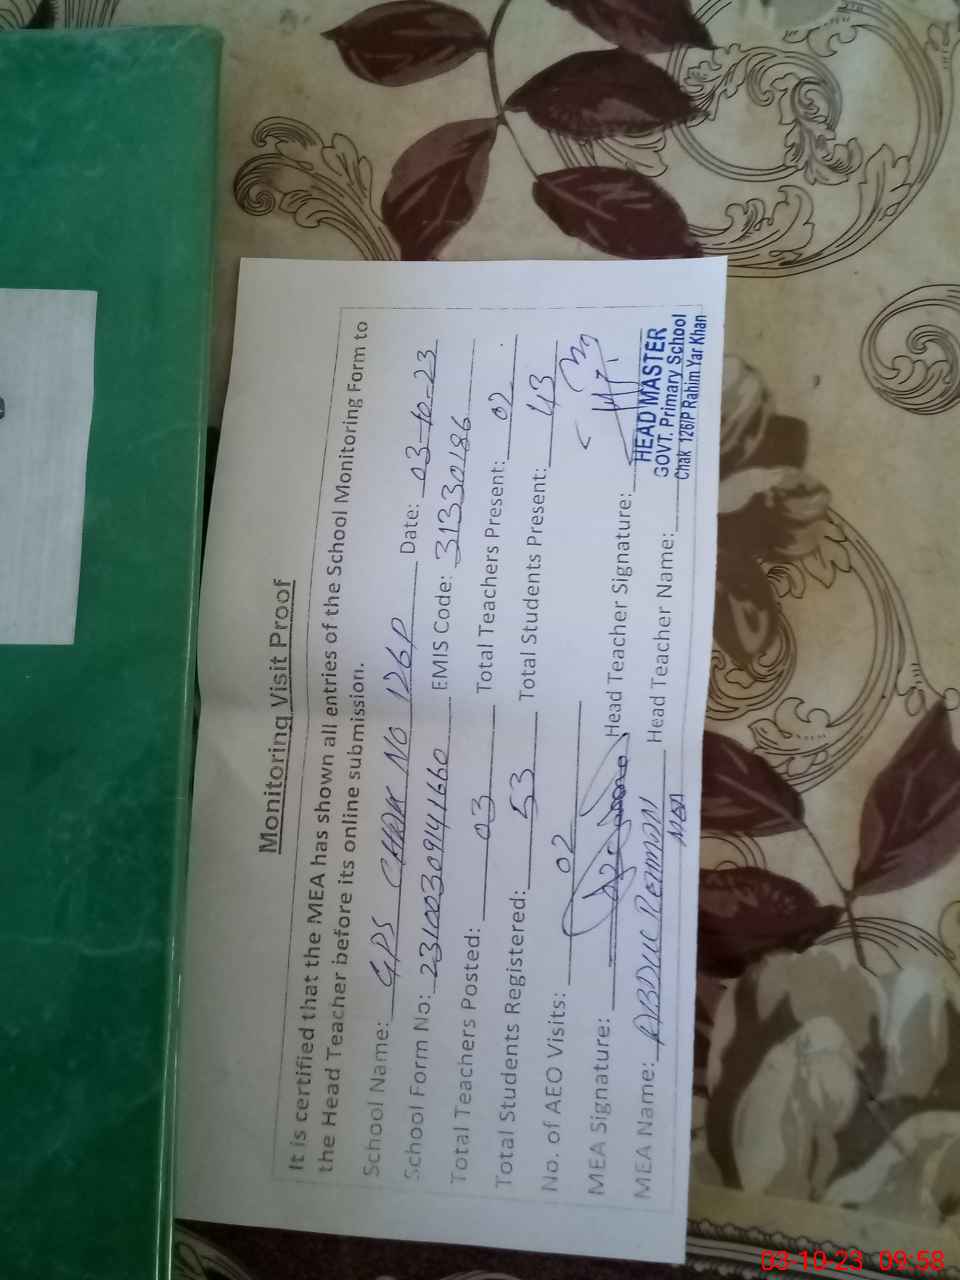 Monitoring Visit Proof
It is certified that the MEA has shown all entries of the School Monitoring Form to
the Head Teacher before its online submission.
School Name: GPS CHAK NO 126P Date: 03-10-23
School Form No: 23100309141660 EMIS Code: 31330186
Total Teachers Posted: 03 Total Teachers Present: 02
Total Students Registered: 53 Total Students Present: 43
No. of AEO Visits: 02
MEA Signature: Head Teacher Signature:
MEA Name: ABDUL REHMAN Head Teacher Name:
MEA
HEAD MASTER
GOVT. Primary School
Chak 126/P Rahim Yar Khan
03-10-23 09:58